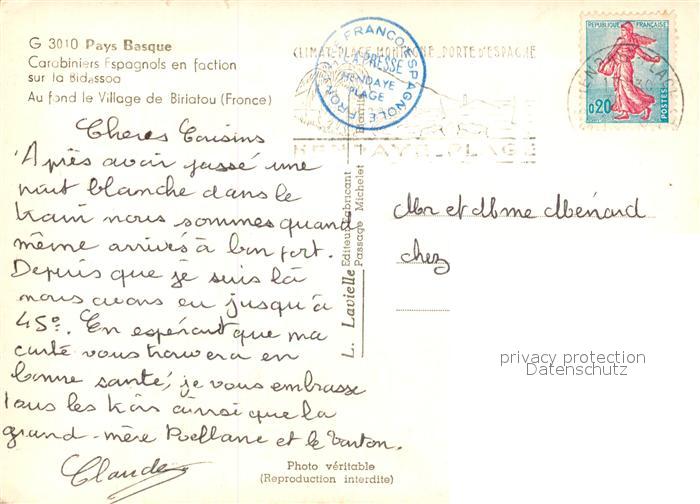 G 3010 Pays Basque
Carabiniers Espagnols en faction
sur la Bidassoa
Au fond le Village de Biriatou (France)
Chères Cousins
Après avoir passé une
nuit blanche dans le
train nous sommes quand
même arrivés à bon port.
Depuis que je suis là
nous avons eu jusqu'à
45°. En espérant que ma
carte vous trouvera en
bonne santé, je vous embrasse
tous les ainsi que la
grand-mère et le
Claude
Photo véritable
(Reproduction interdite)
L. Lavielle Editeur Fabricant
Passage Michelet
FRANCO ESPAGNOLE
LA PRESSE
HENDAYE
PLAGE
CLIMAT-PLAGE-MONTAGNE-PORTE D'ESPAGNE
HENDAYE-PLAGE
REPUBLIQUE FRANÇAISE
0,20
POSTES
Mr et Mme Ménard
chez
privacy protection
Datenschutz